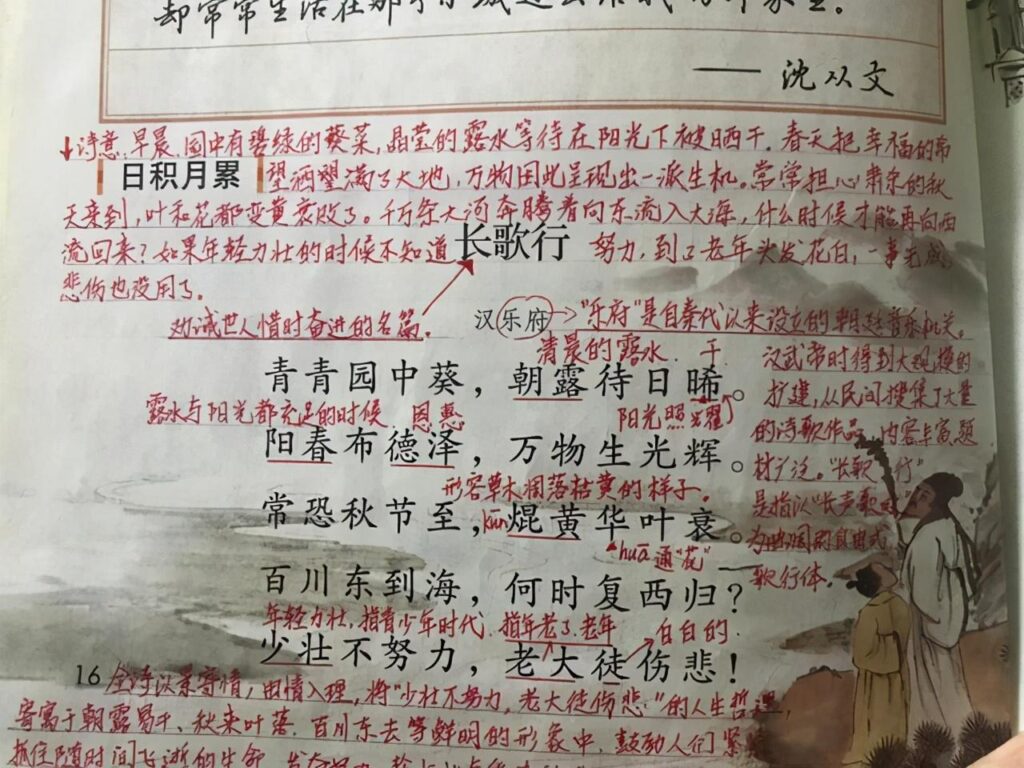 却常常生活在那个小城过去给我的印象里。
—— 沈从文
↓诗意:早晨,园中有碧绿的葵菜,晶莹的露水等待在阳光下被晒干。春天把幸福的希
日积月累
望洒满了大地,万物因此呈现出一派生机。常常担心肃杀的秋
天来到,叶和花都变黄衰败了。千万条大河奔腾着向东流入大海,什么时候才能再向西
流回来?如果年轻力壮的时候不知道
长歌行
努力,到了老年头发花白,一事无成,
悲伤也没用了。
劝诫世人惜时奋进的名篇。
汉乐府
"乐府"是自秦代以来设立的朝廷音乐机关。
汉武帝时得到大规模的
扩建,从民间搜集了大量
的诗歌作品,内容丰富,题
材广泛。"长歌行"
是指以"长声歌
为曲调的自由式
歌行体。
清晨的露水. 干
青青园中葵,朝露待日晞。
露水与阳光都充足的时候 恩惠
阳光照耀
阳春布德泽,万物生光辉。
形容草木凋落枯黄的样子。
常恐秋节至,kūn焜黄华叶衰。
huā通"花"
百川东到海,何时复西归?
年轻力壮,指青少年时代. 指年老了,老年 白白的.
少壮不努力,老大徒伤悲!
16
全诗以景寄情,由情入理,将"少壮不努力,老大徒伤悲"的人生哲理,
寄寓于朝露易干、秋来叶落、百川东去等鲜明的形象中,鼓励人们紧紧
抓住随时间飞逝的生命